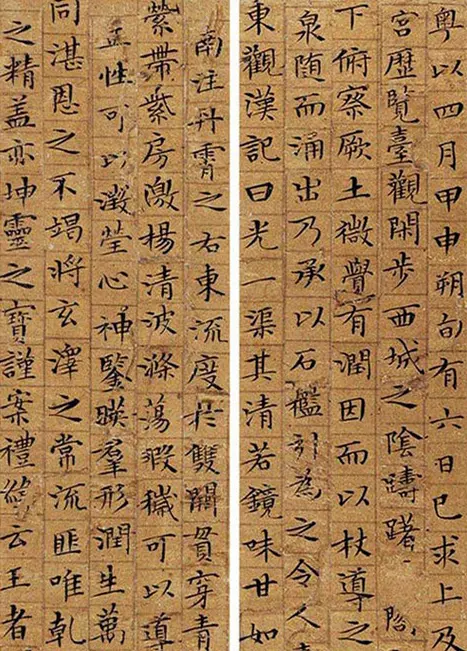 粵以四月甲申朔旬有六日己亥上及
宮歷覽臺觀閑步西城之陰躊躇
下俯察厥土微覺有潤因而以杖導之
泉隨而涌出乃承以石檻引為之令人
東觀漢記曰光一渠其清若鏡味甘如
南注丹霄之右東流度於雙闕貫穿青
縈帶紫房激楊清波滌蕩瑕穢可以導
養性可以澂瑩心神鑒暎羣形潤生萬
同湛恩之不竭將玄澤之常流匪唯乾
之精蓋亦坤靈之寶謹案禮緯云王者